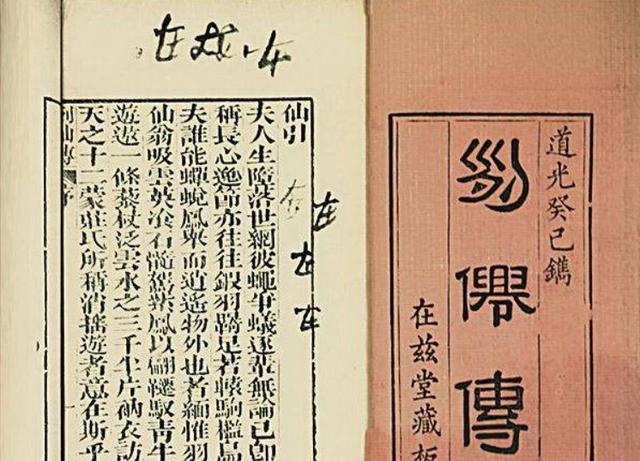 道光癸巳鐫
列僊傳
在茲堂藏板
在
仙引
夫人生墮落世網彼蠅爭蟻逐輩無論已卽
稱長心逸節亦往往鎩羽踦足若轅駒檻
夫誰能蟬蛻鳳舉而逍遙物外也者緬惟羽
仙翁吸雲英飡石髓駕紫鳳以翩躚馭青牛
遊遨一條藜杖泛雲水之三千半片衲衣訪
天之十二蒙莊氏所稱消搖遊者意在斯乎
列仙傳 序 一
在
在
在
在